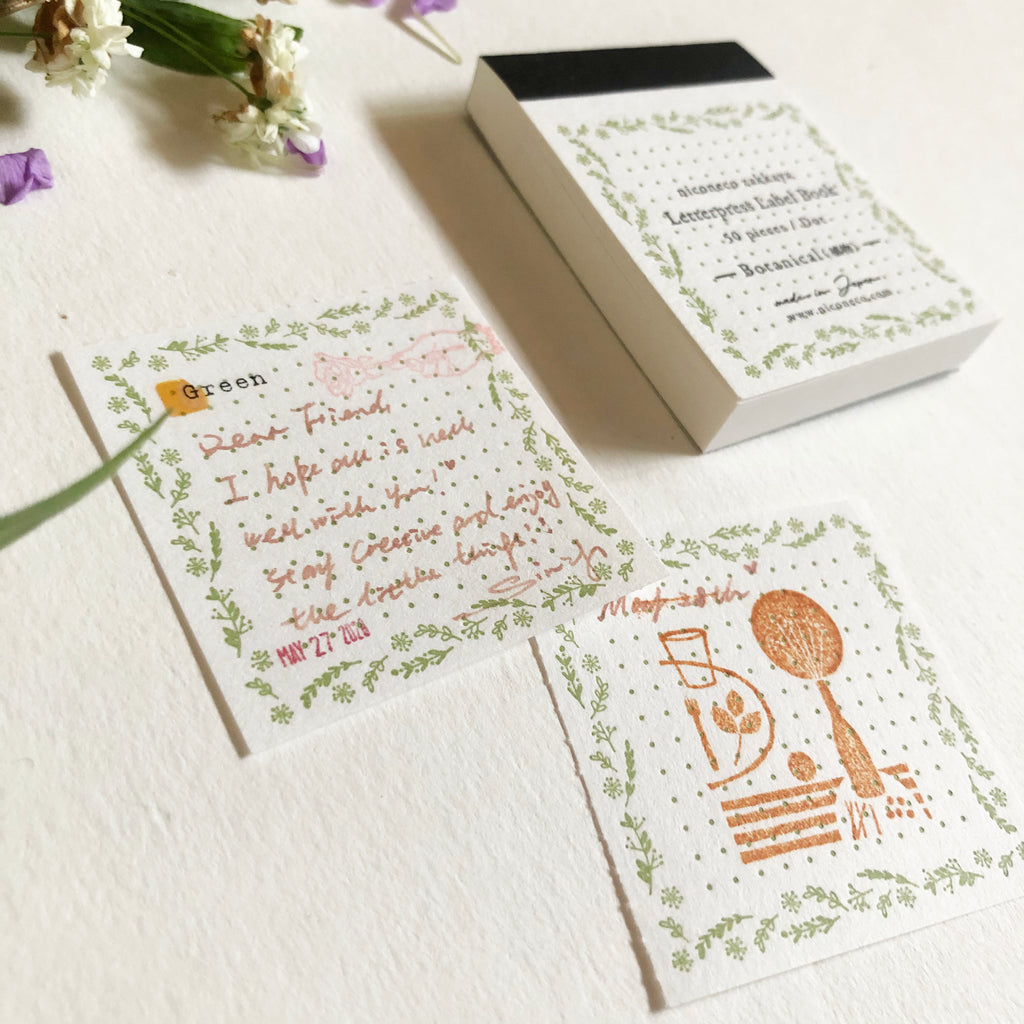 niconeco zakkaya
Letterpress Label Book
50 pieces / Dot
Botanical (植物)
made in Japan
www.niconeco.com
Green
Dear Friend,
I hope all is well
well with you!
stay creative and enjoy
the little things!!
MAY 27 2020
May 28th